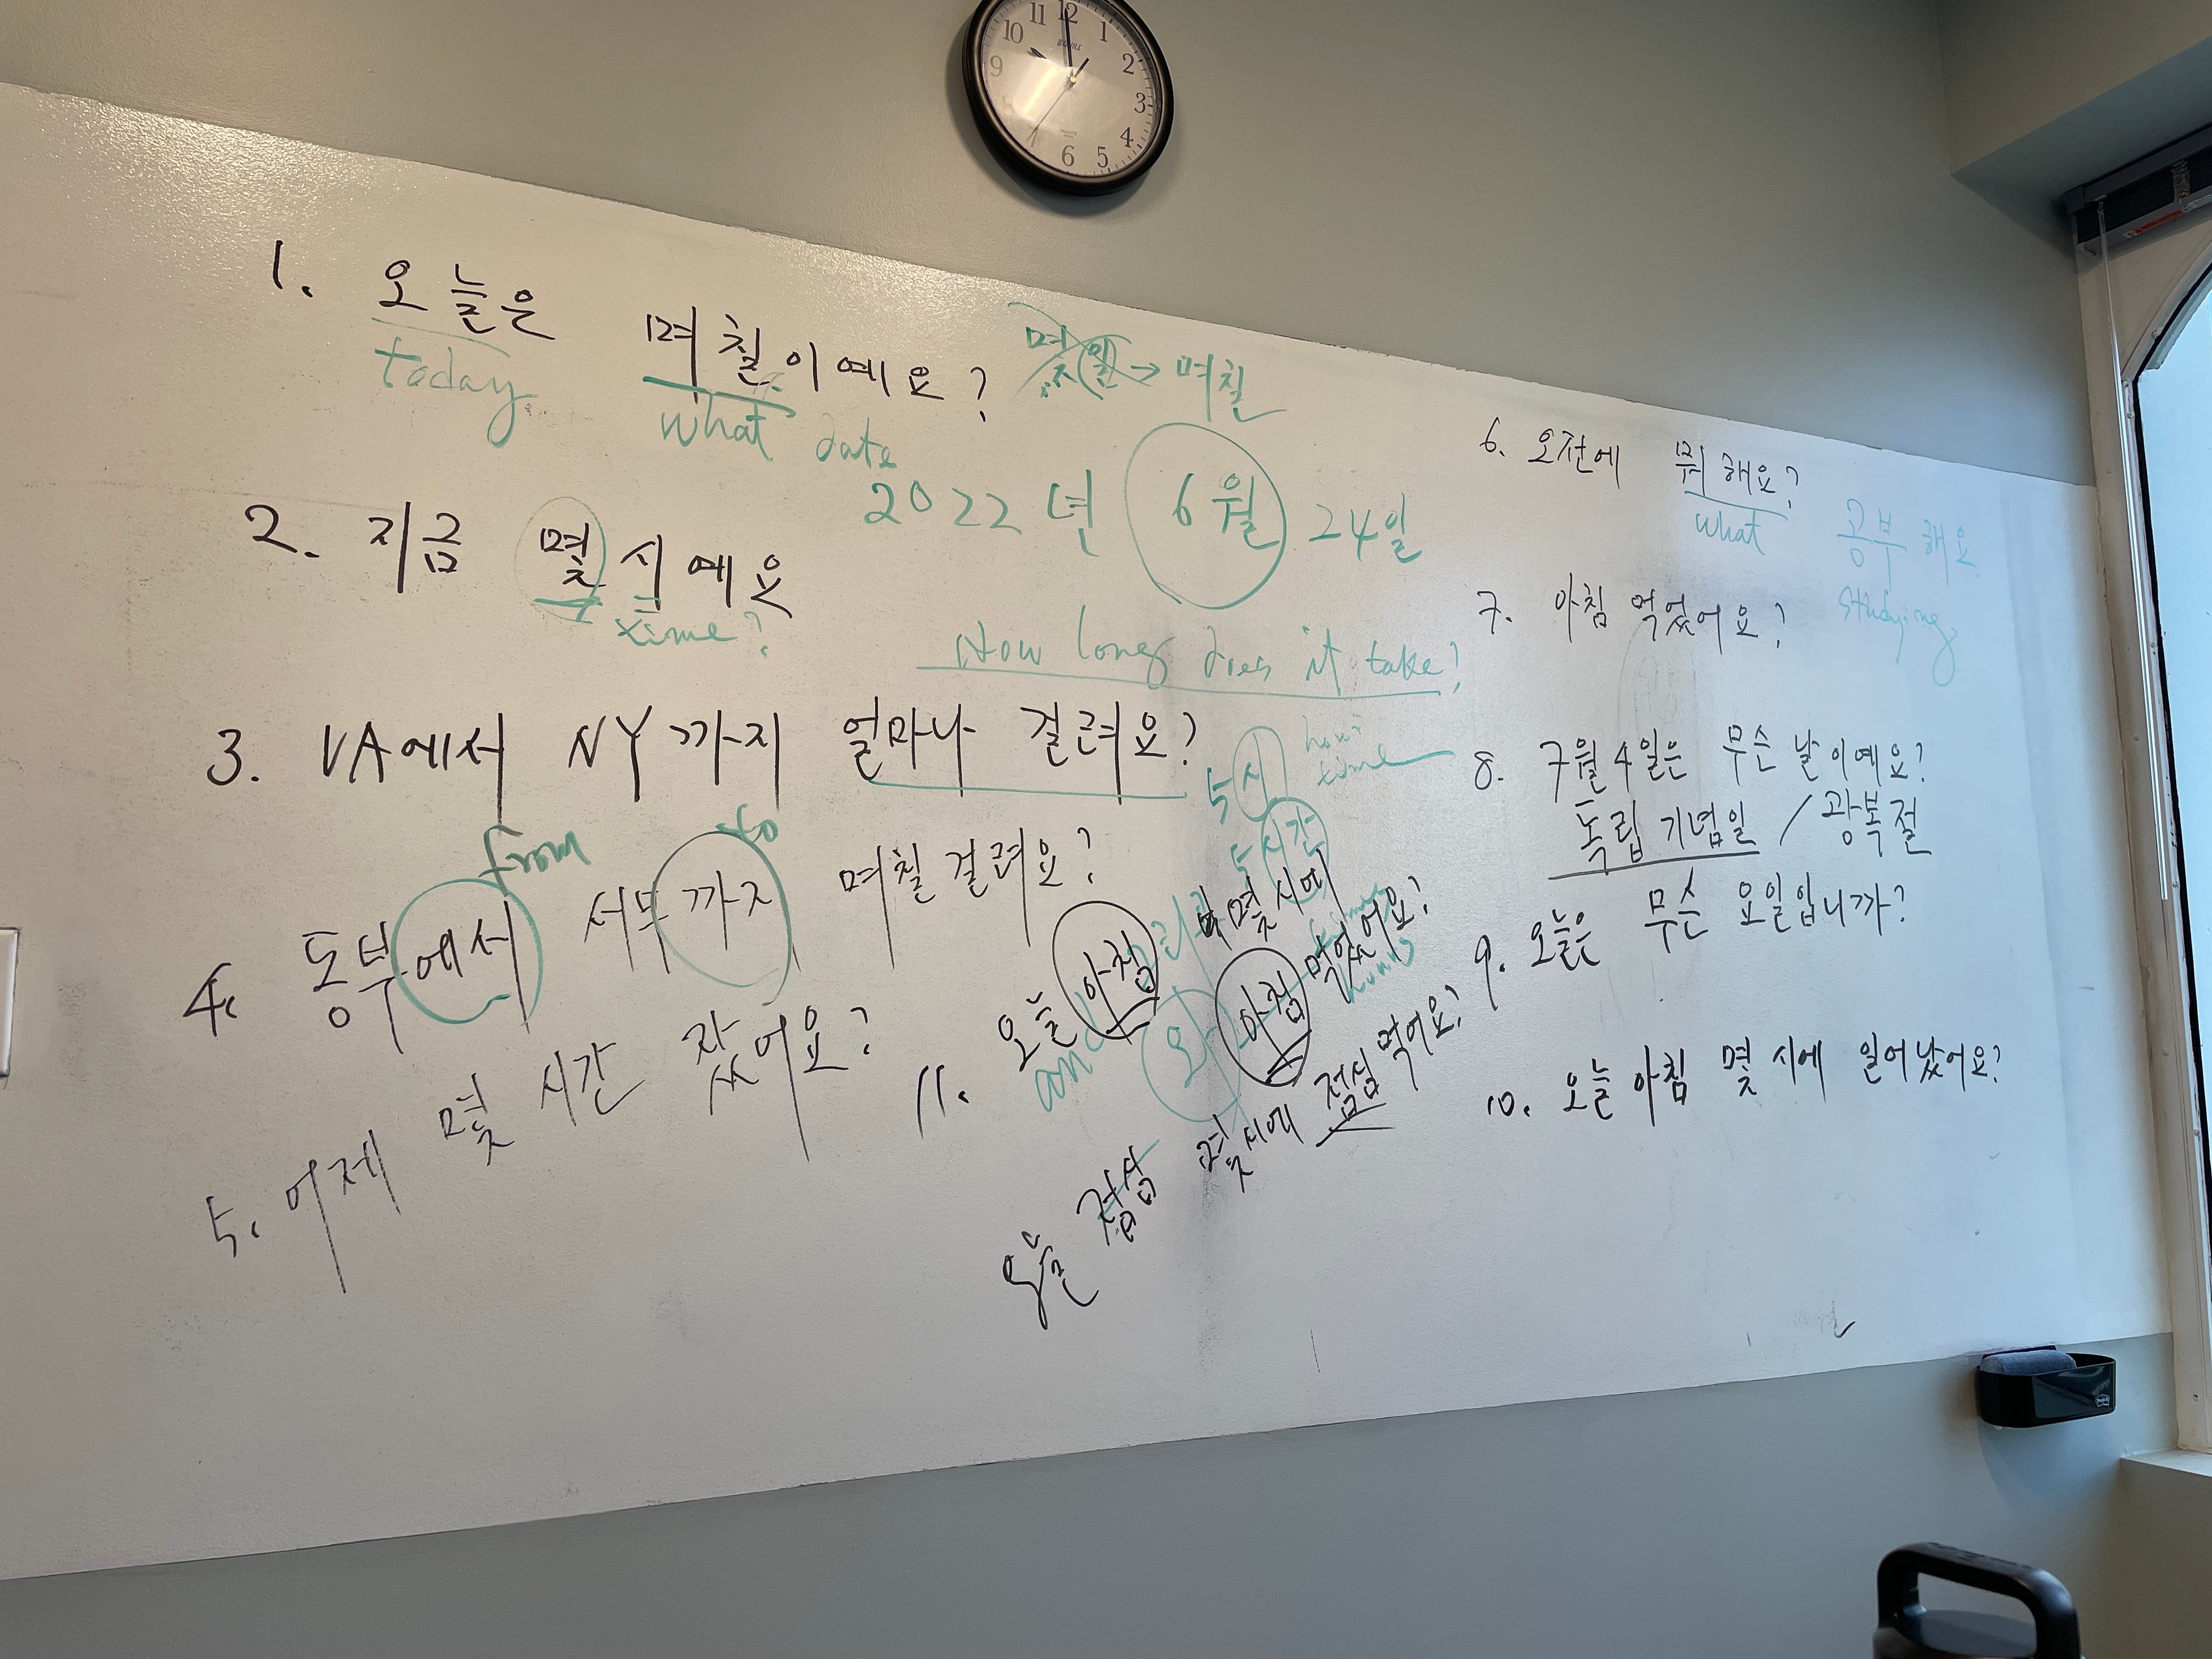 11 12 1 2 3 4 5 6 7 9 10
1. 오늘은 며칠이예요?
today
what date
몇일 → 며칠
2022년 6월 24일
2. 지금 몇 시예요
time?
How long does it take?
3. VA에서 NY까지 얼마나 걸려요?
from to
5시
time
5시간
4. 동부에서 서부까지 며칠 걸려요?
5. 어제 몇 시간 잤어요?
11. 오늘 아침 몇 시에
아침 먹었어요?
and 와
오늘 점심 몇 시에 점심 먹어요?
6. 오전에 뭐 해요?
what
공부해요
studying
7. 아침 먹었어요?
8. 7월 4일은 무슨 날이예요?
독립 기념일 / 광복절
9. 오늘은 무슨 요일입니까?
10. 오늘 아침 몇 시에 일어났어요?